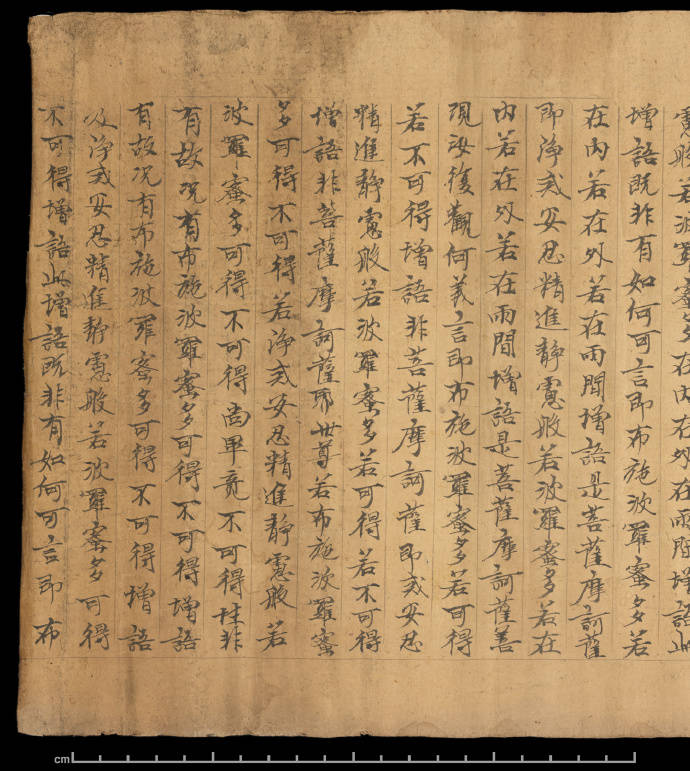 慮般若波羅蜜多在內在外在兩間增語此
增語既非有如何可言即布施波羅蜜多若
在內若在外若在兩間增語是菩薩摩訶薩
即淨戒安忍精進靜慮般若波羅蜜多若在
內若在外若在兩間增語是菩薩摩訶薩善
現汝復觀何義言即布施波羅蜜多若可得
若不可得增語非菩薩摩訶薩即戒安忍
精進靜慮般若波羅蜜多若可得若不可得
增語非菩薩摩訶薩耶世尊若布施波羅蜜
多可得不可得若淨戒安忍精進靜慮般若
波羅蜜多可得不可得尚畢竟不可得性非
有故況有布施波羅蜜多可得不可得增語
有故況有布施波羅蜜多可得不可得增語
及淨戒安忍精進靜慮般若波羅蜜多可得
不可得增語此增語既非有如何可言即布
cm